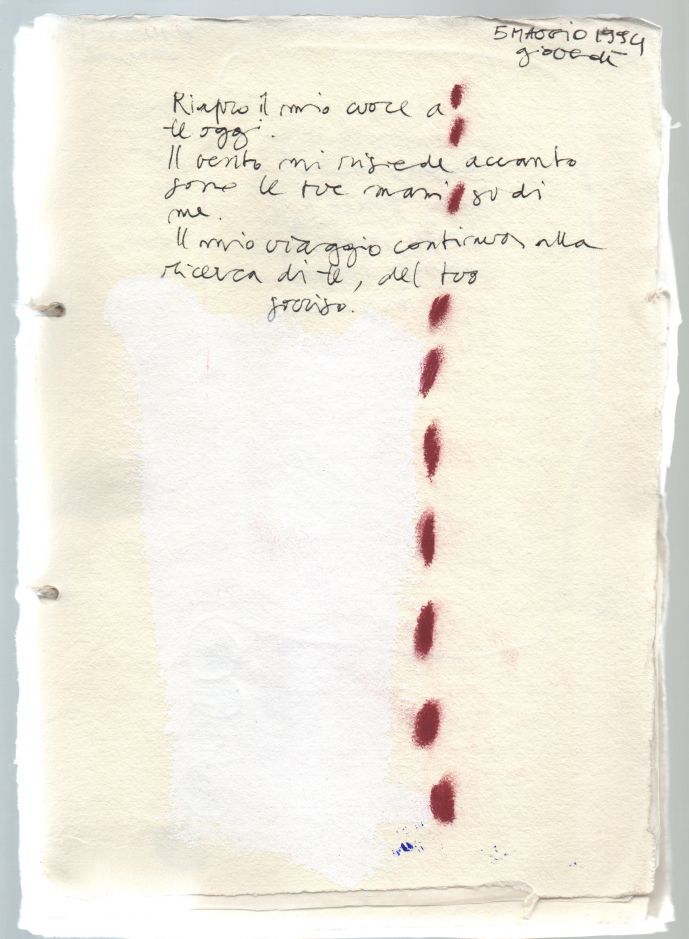 5 MAGGIO 1994
giovedì
Riapro il mio cuore a
te oggi.
Il vento mi risiede accanto
sono le tue mani su di
me.
Il mio viaggio continua alla
ricerca di te, del tuo
sorriso.